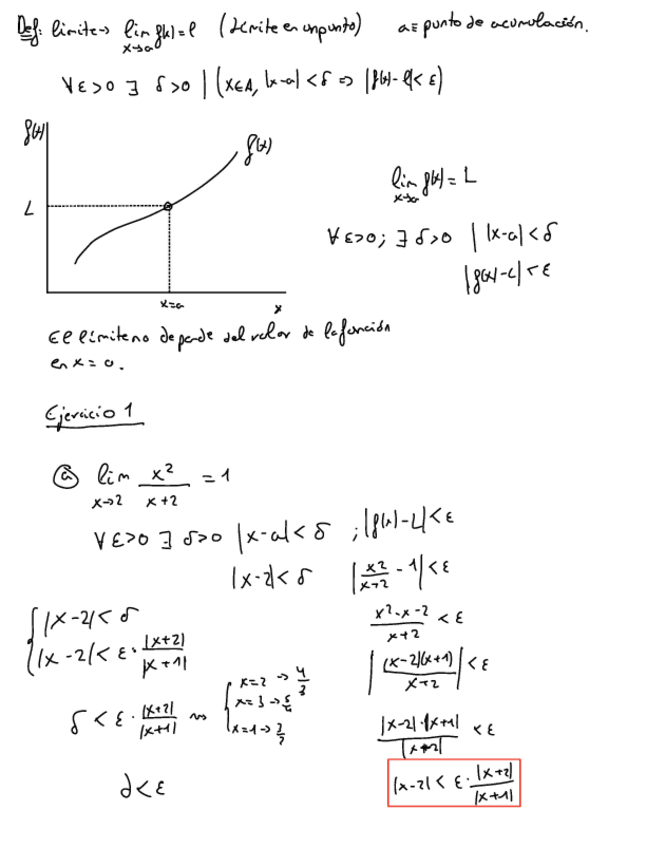 Def: limite → lim f(x) = l (límite en un punto) a ≡ punto de acumulación.
x→a
∀ε>0 ∃ δ>0 | (x∈A, |x-a|<δ ⇒ |f(x)-l|<ε)
f(x)
f(x)
L
x=a
x
lim f(x) = L
x→a
∀ε>0; ∃ δ>0 | |x-a|<δ
|f(x)-L|<ε
El límite no depende del valor de la función
en x = a.
Ejercicio 1
ⓐ lim x²/(x+2) = 1
x→2
∀ε>0 ∃ δ>0 |x-a|<δ ; |f(x)-L|<ε
|x-2|<δ |x²/(x+2) - 1|<ε
{ |x-2|<δ
|x-2|<ε·|x+2|/|x+1|
δ<ε·|x+2|/|x+1| ⇝ { x=2 → 4/3
x=3 → 5/4
x=1 →
δ<ε
(x²-x-2)/(x+2) < ε
|(x-2)(x+1)/(x+2)| < ε
|x-2|·|x+1|/|x+2| < ε
|x-2| < ε·|x+2|/|x+1|